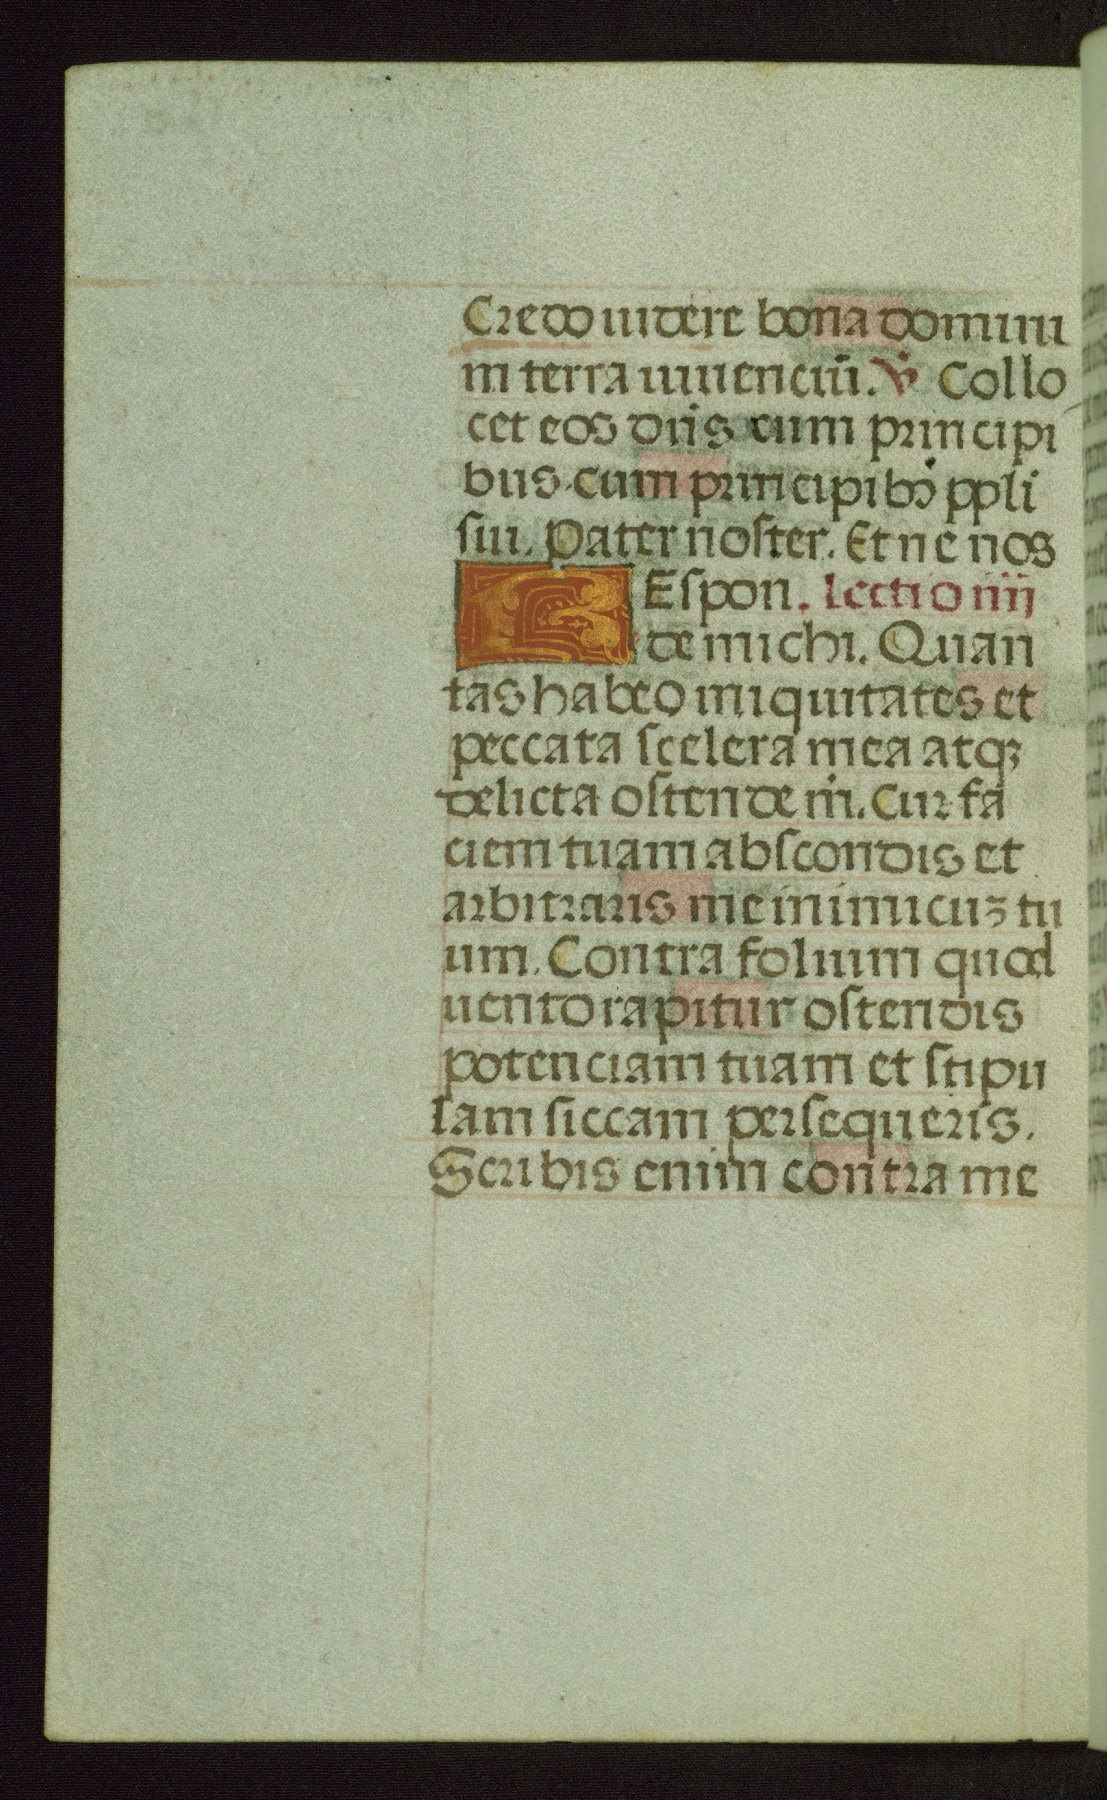 Credo uidere bona domini
in terra uiuenciū. ℣ Collo
cet eos dn̄s cum principi
bus. cum principibꝰ ppli
sui. Pater noster. Et ne nos
REspon. lectio iiii
de michi. Quan
tas habeo iniquitates et
peccata scelera mea atqꝫ
delicta ostende m̄. Cur fa
ciem tuam abscondis et
arbitraris me inimicuꝫ tu
um. Contra folium quod
uento rapitur ostendis
potenciam tuam et stipu
lam siccam persequeris.
Scribis enim contra me